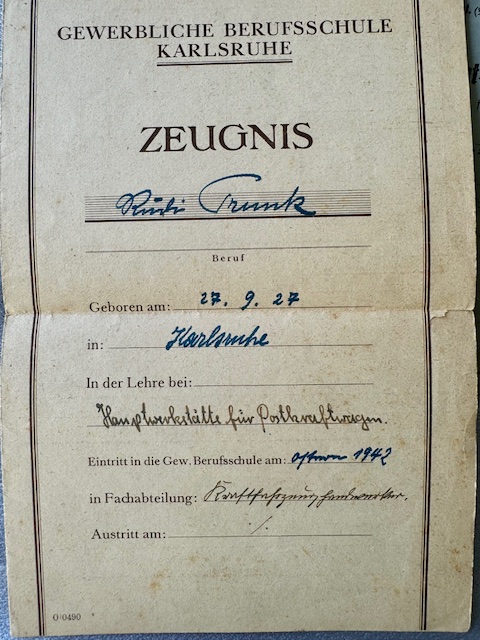 GEWERBLICHE BERUFSSCHULE
KARLSRUHE
ZEUGNIS
Rudi Trunk
Beruf
Geboren am: 27. 9. 27
in: Karlsruhe
In der Lehre bei:
Hauptwerkstätte für Postkraftwagen.
Eintritt in die Gew. Berufsschule am: Ostern 1942
in Fachabteilung: Kraftfahrzeughandwerker.
Austritt am: ./.
O/0490